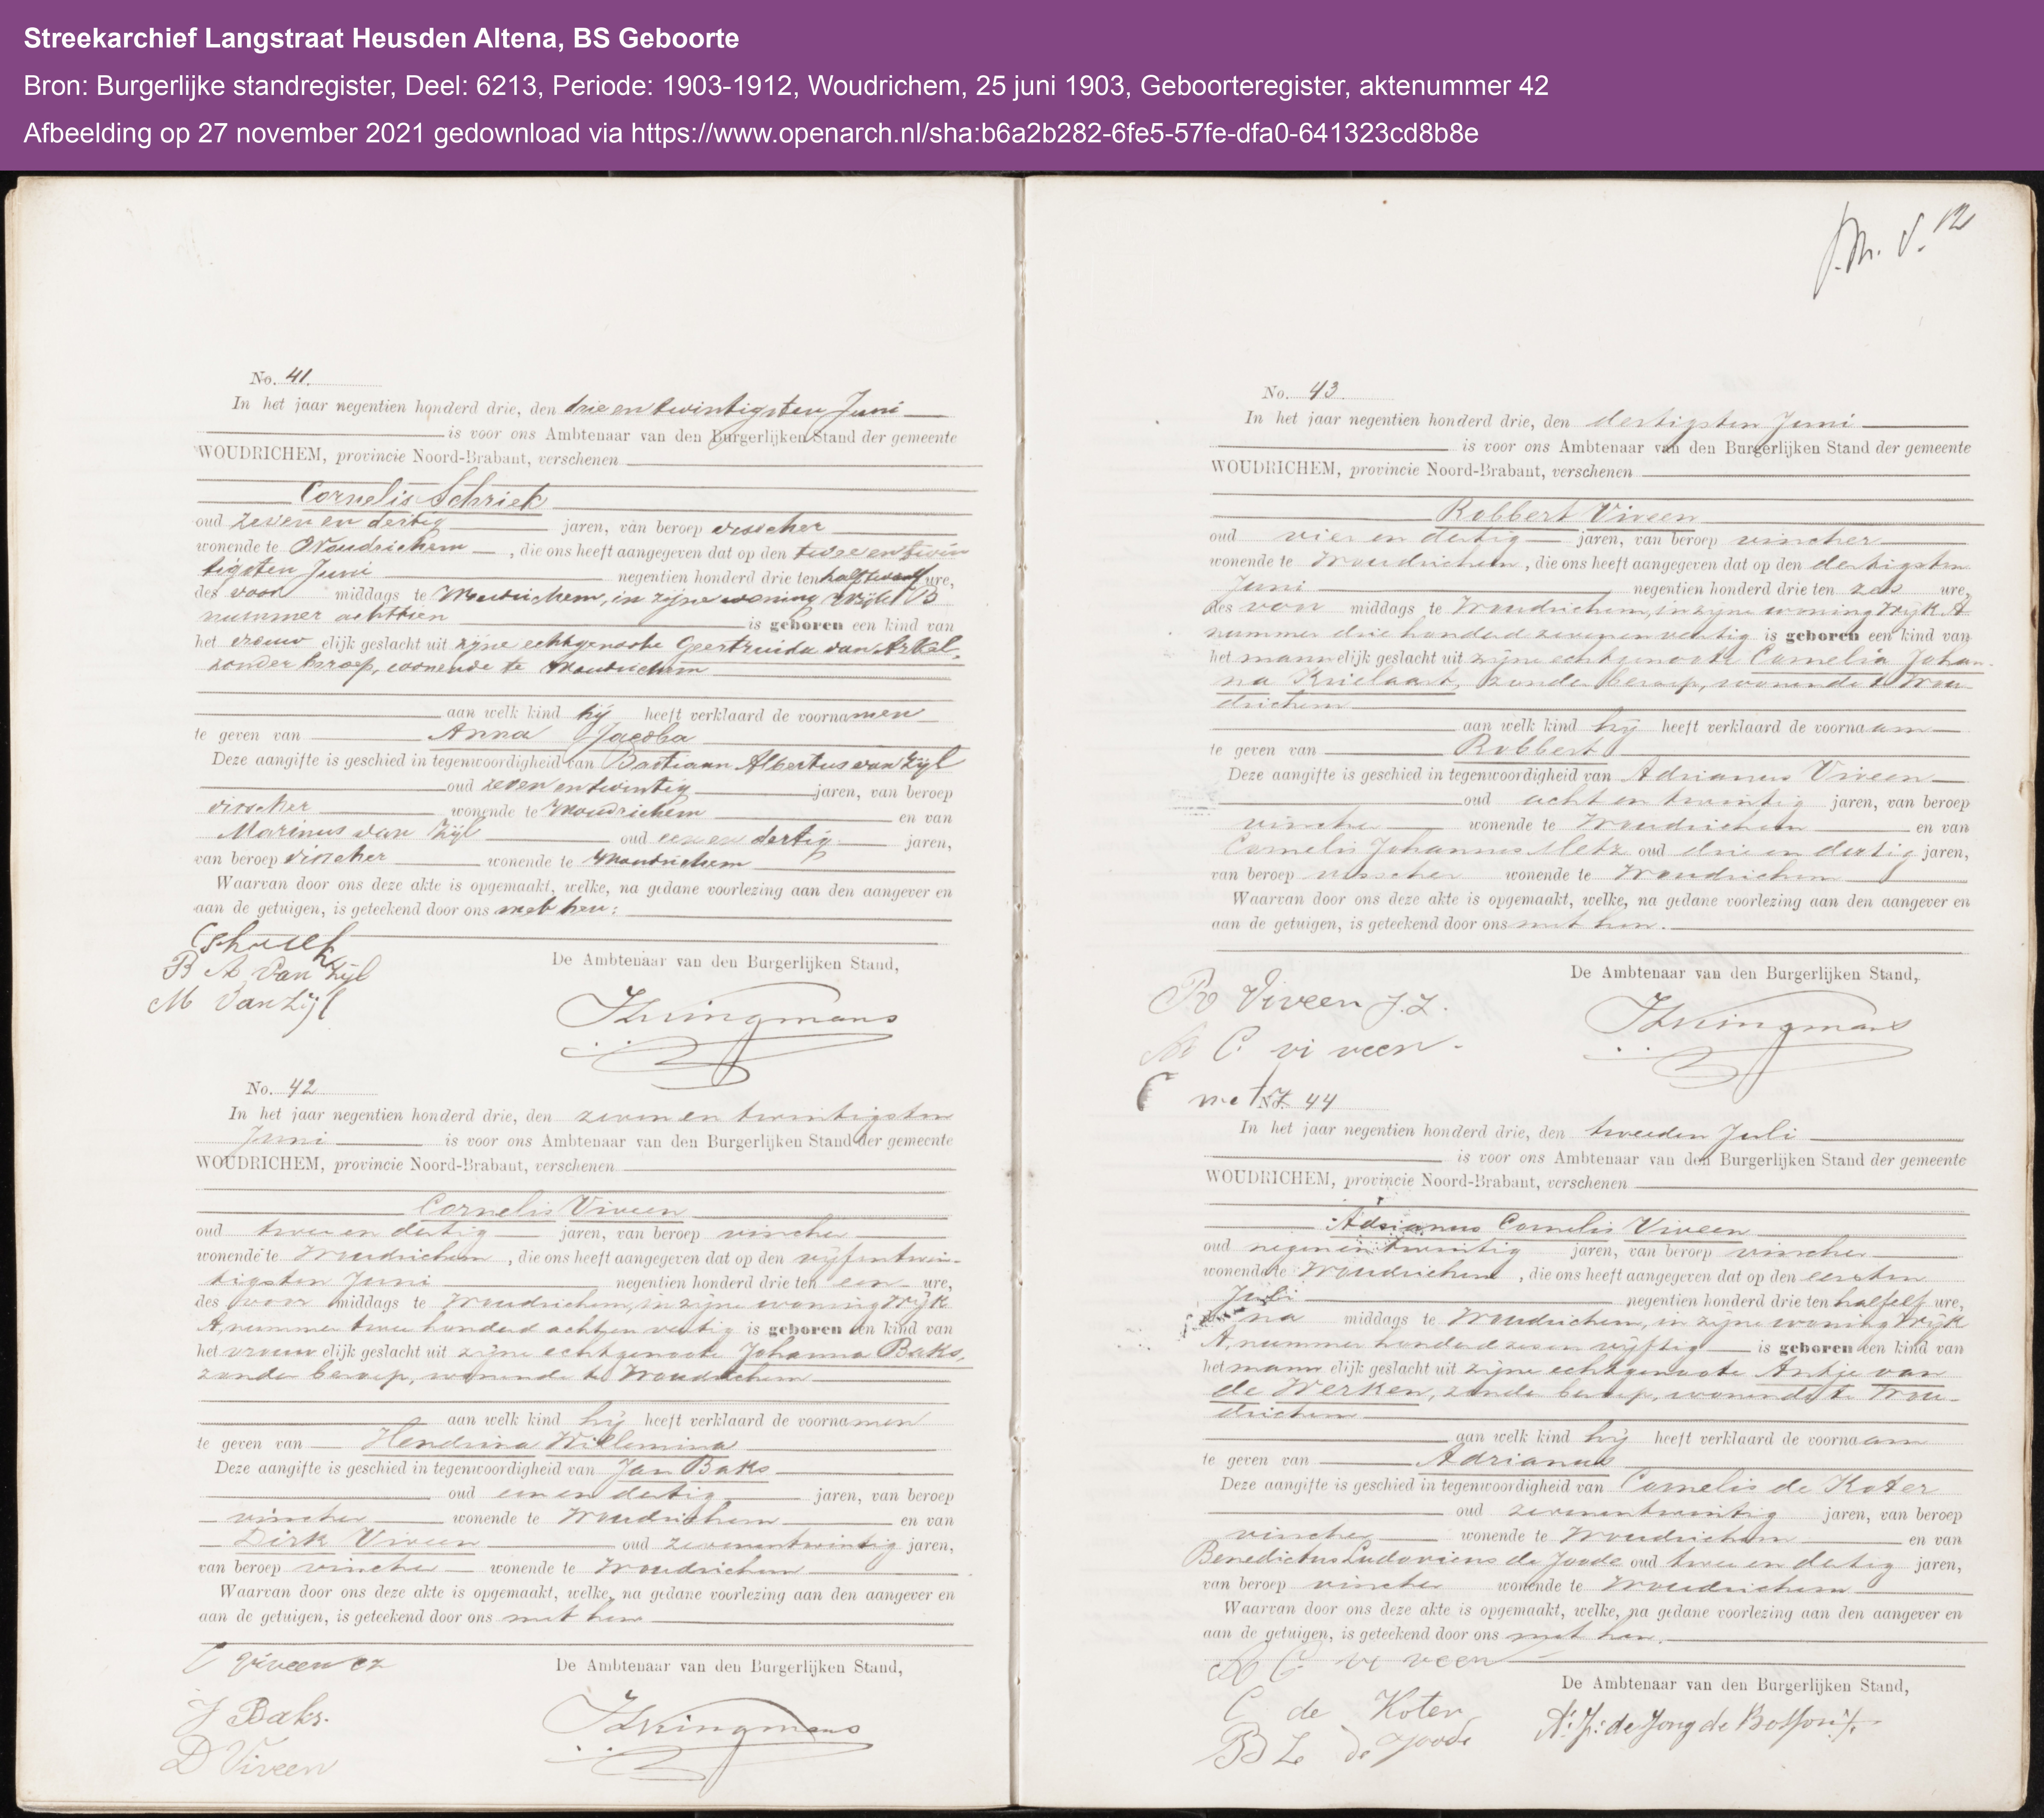 Streekarchief Langstraat Heusden Altena, BS Geboorte
Bron: Burgerlijke standregister, Deel: 6213, Periode: 1903-1912, Woudrichem, 25 juni 1903, Geboorteregister, aktenummer 42
Afbeelding op 27 november 2021 gedownload via https://www.openarch.nl/sha:b6a2b282-6fe5-57fe-dfa0-641323cd8b8e
No. 41.
In het jaar negentien honderd drie, den drie en twintigsten Juni
is voor ons Ambtenaar van den Burgerlijken Stand der gemeente
WOUDRICHEM, provincie Noord-Brabant, verschenen
Cornelis Schriek
oud zeven en dertig jaren, van beroep visscher
wonende te Woudrichem, die ons heeft aangegeven dat op den twee en twin
tigsten Juni negentien honderd drie ten half twaalf ure,
des voor middags te Woudrichem, in zijne woning wijk B
nummer achttien is geboren een kind van
het vrouw elijk geslacht uit zijne echtgenoote Geertruida van Arkel,
zonder beroep, wonende te Woudrichem
aan welk kind hij heeft verklaard de voornamen
te geven van Anna Jacoba
Deze aangifte is geschied in tegenwoordigheid van Bastiaan Albertus van Zijl
oud zeven en twintig jaren, van beroep
visscher wonende te Woudrichem en van
Marinus van Zijl oud een en dertig jaren,
van beroep visscher wonende te Woudrichem
Waarvan door ons deze akte is opgemaakt, welke, na gedane voorlezing aan den aangever en
aan de getuigen, is geteekend door ons met hen:
C Schriek
B A van Zijl
M van Zijl
De Ambtenaar van den Burgerlijken Stand,
No. 42
In het jaar negentien honderd drie, den zeven en twintigsten
Juni is voor ons Ambtenaar van den Burgerlijken Stand der gemeente
WOUDRICHEM, provincie Noord-Brabant, verschenen
Cornelis Viveen
oud twee en dertig jaren, van beroep visscher
wonende te Woudrichem, die ons heeft aangegeven dat op den vijfentwin-
tigsten Juni negentien honderd drie ten een ure,
des voor middags te Woudrichem, in zijne woning Wijk
A, nummer twee honderd acht en veertig is geboren een kind van
het vrouw elijk geslacht uit zijne echtgenoote Johanna Baks,
zonder beroep, wonende te Woudrichem
aan welk kind hij heeft verklaard de voornamen
te geven van Hendrina Willemina
Deze aangifte is geschied in tegenwoordigheid van Jan Baks
oud een en dertig jaren, van beroep
visscher wonende te Woudrichem en van
Dirk Viveen oud zevenentwintig jaren,
van beroep visscher wonende te Woudrichem
Waarvan door ons deze akte is opgemaakt, welke, na gedane voorlezing aan den aangever en
aan de getuigen, is geteekend door ons met hen
C Viveen Cz
J Baks.
D Viveen
De Ambtenaar van den Burgerlijken Stand,
12
No. 43
In het jaar negentien honderd drie, den dertigsten Juni
is voor ons Ambtenaar van den Burgerlijken Stand der gemeente
WOUDRICHEM, provincie Noord-Brabant, verschenen
Robbert Viveen
oud vier en dertig jaren, van beroep visscher
wonende te Woudrichem, die ons heeft aangegeven dat op den dertigsten
Juni negentien honderd drie ten zes ure,
des voor middags te Woudrichem, in zijne woning Wijk A
nummer drie honderd zeven en veertig is geboren een kind van
het mann elijk geslacht uit zijne echtgenoote Cornelia Johan-
na Krielaart, zonder beroep, wonende te Wou-
drichem
aan welk kind hij heeft verklaard de voornaam
te geven van Robbert
Deze aangifte is geschied in tegenwoordigheid van Adrianus Viveen
oud acht en twintig jaren, van beroep
visscher wonende te Woudrichem en van
Cornelis Johannes Metz oud drie en dertig jaren,
van beroep visscher wonende te Woudrichem
Waarvan door ons deze akte is opgemaakt, welke, na gedane voorlezing aan den aangever en
aan de getuigen, is geteekend door ons met hen.
R Viveen J.Z.
A C vi veen.
C metz
De Ambtenaar van den Burgerlijken Stand,
No. 44
In het jaar negentien honderd drie, den tweeden Juli
is voor ons Ambtenaar van den Burgerlijken Stand der gemeente
WOUDRICHEM, provincie Noord-Brabant, verschenen
Adrianus Cornelis Viveen
oud negenentwintig jaren, van beroep visscher
wonende te Woudrichem, die ons heeft aangegeven dat op den eersten
Juli negentien honderd drie ten half elf ure,
des na middags te Woudrichem, in zijne woning Wijk
A, nummer honderd zes en vijftig is geboren een kind van
het mann elijk geslacht uit zijne echtgenoote Antje van
de Werken, zonder beroep, wonende te Wou-
drichem
aan welk kind hij heeft verklaard de voornaam
te geven van Adrianus
Deze aangifte is geschied in tegenwoordigheid van Cornelis de Koter
oud zevenentwintig jaren, van beroep
visscher wonende te Woudrichem en van
Benedictus Ludovicus de Joode oud twee en dertig jaren,
van beroep visscher wonende te Woudrichem
Waarvan door ons deze akte is opgemaakt, welke, na gedane voorlezing aan den aangever en
aan de getuigen, is geteekend door ons met hen.
A C vi veen
C de Koter
B L de Joode
De Ambtenaar van den Burgerlijken Stand,